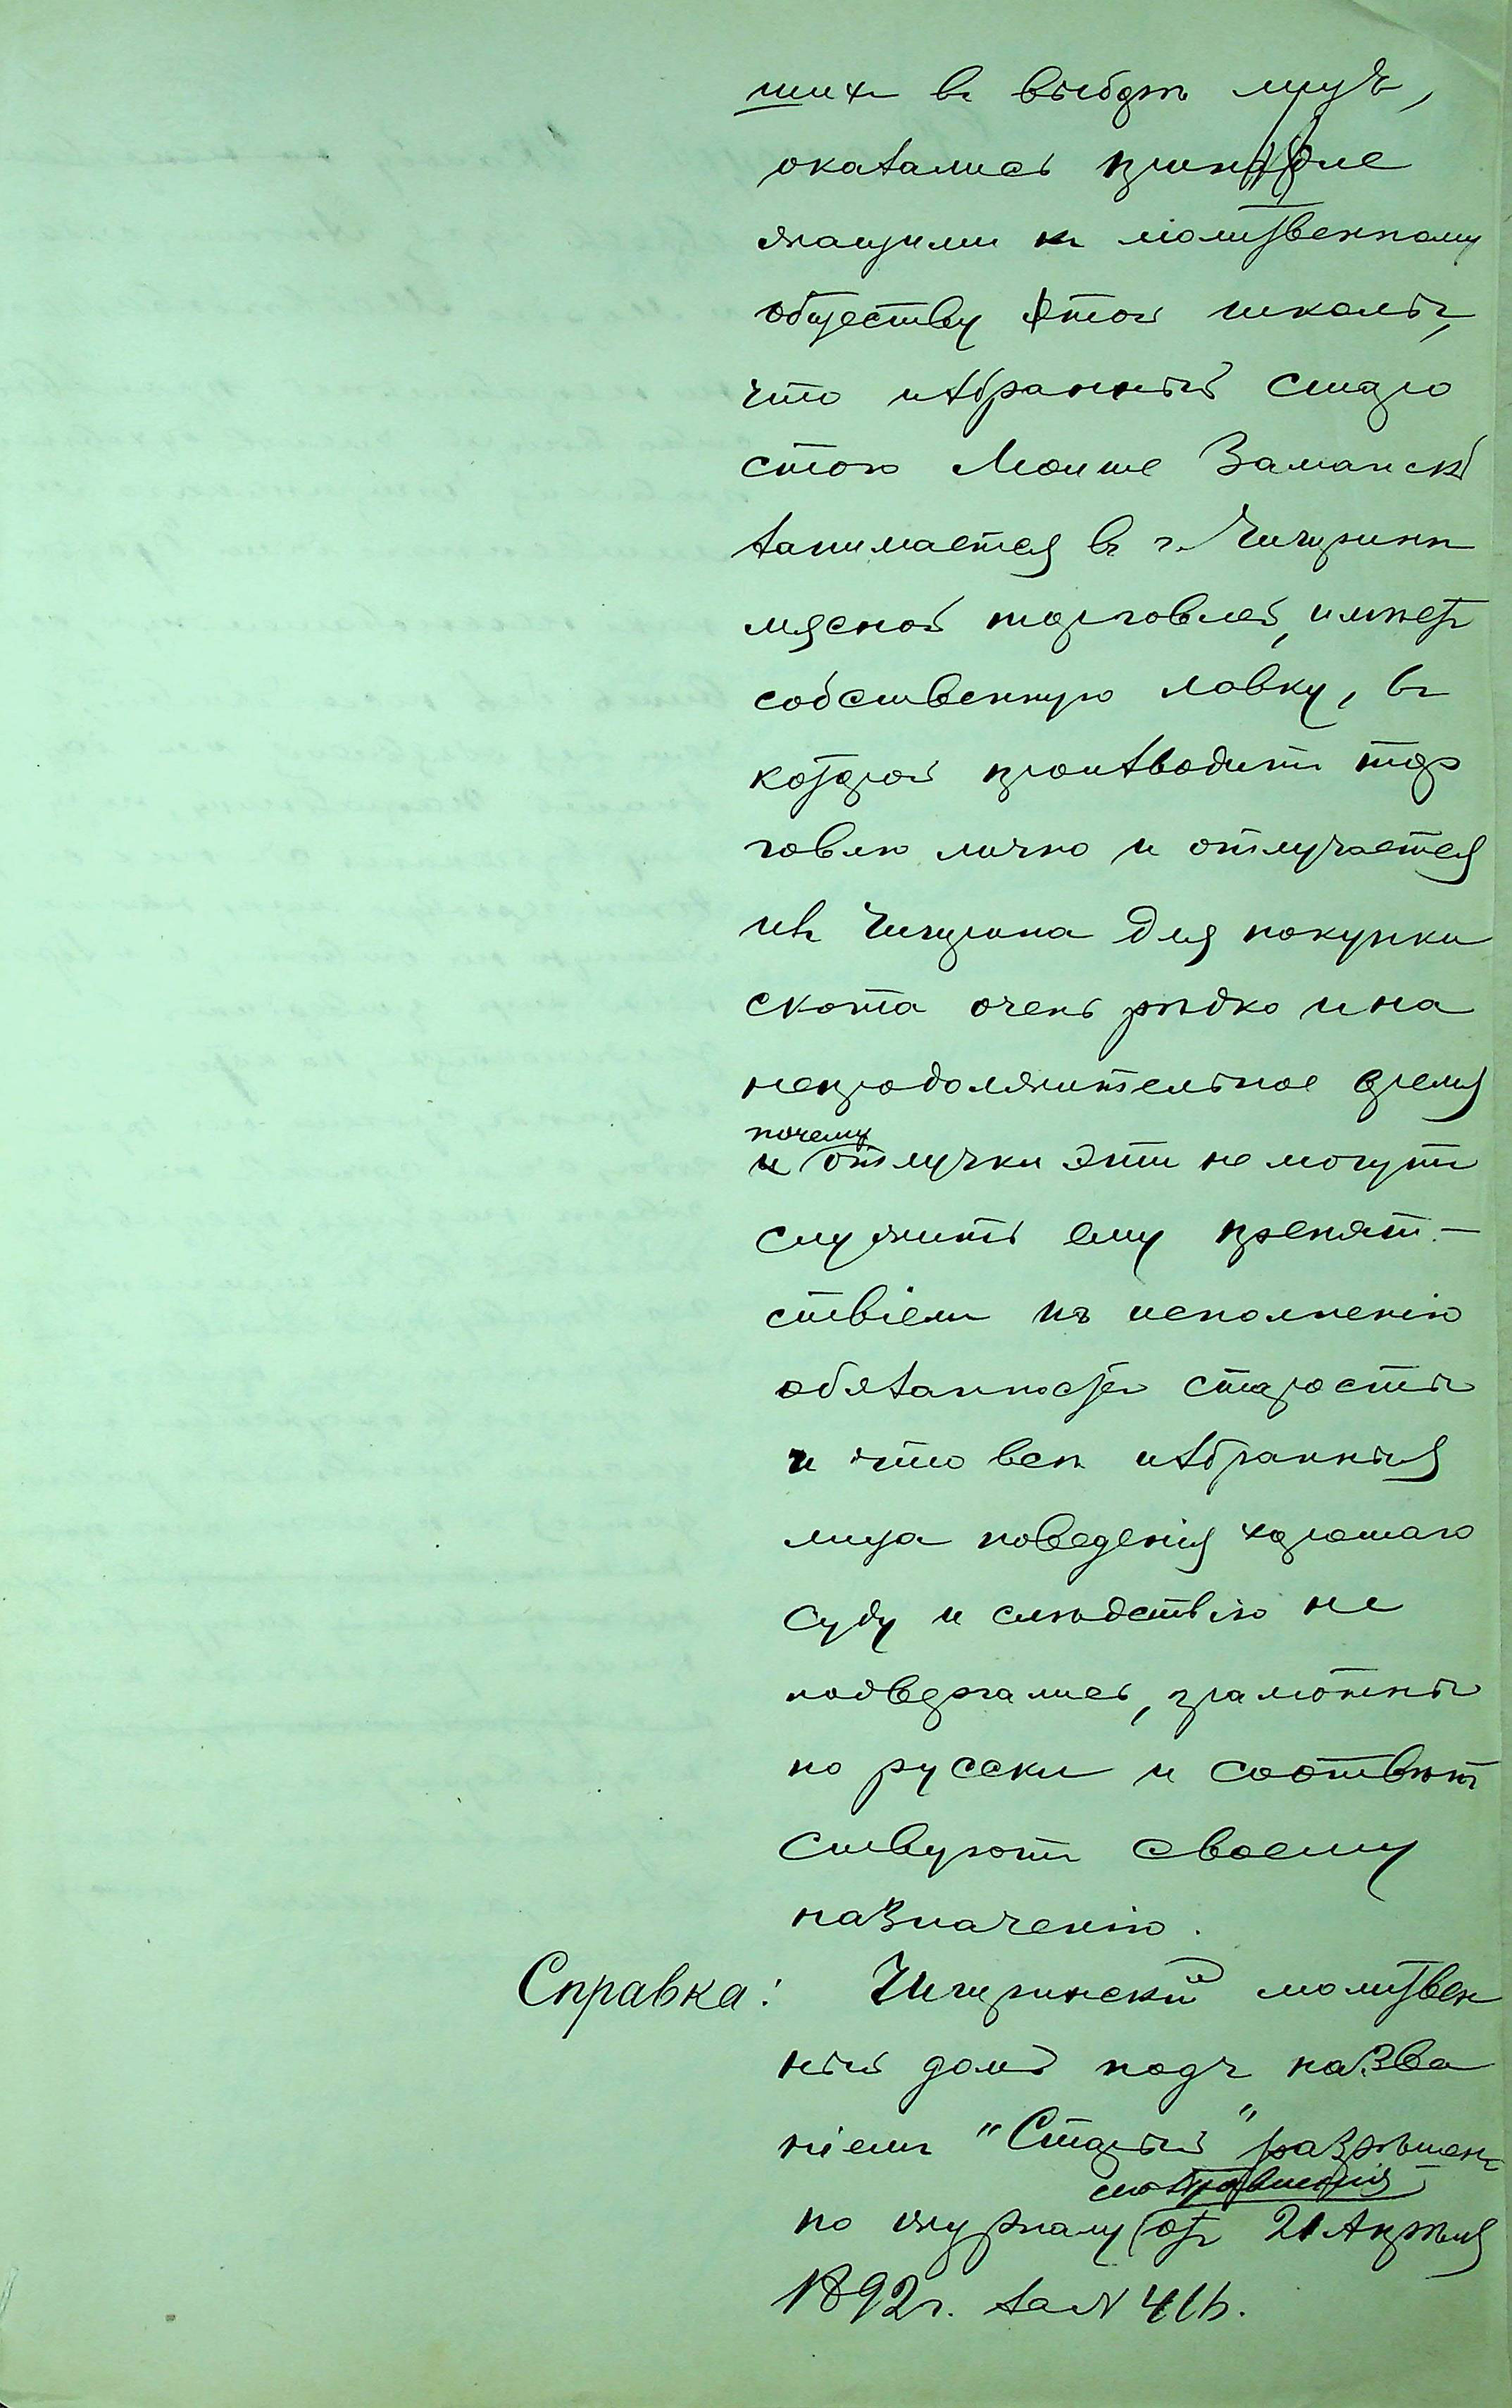 шихъ въ выборѣ лицъ,
оказались принадле
жащими къ молитвенному
обществу этой школы,
что избранный старо
стою Моише Заманскій
занимается въ г. Чигиринѣ
мясной торговлей, имѣетъ
собственную лавку, въ
которой производитъ тор
говлю лично и отлучается
изъ Чигирина для покупки
скота очень рѣдко и на
непродолжительное время
почему
и отлучки эти не могутъ
служить ему препят-
ствіемъ къ исполненію
обязанностей старосты
и что всѣ избранныя
лица поведенія хорошаго
суду и слѣдствію не
подвергались, грамотны
по русски и соотвѣт
ствуютъ своему
назначенію.
Справка: Чигиринскій молитвен
ный домъ подъ назва
ніемъ "Старый" разрѣшенъ
по журналу отъ 21 Апрѣля
1892 г. за № 416.